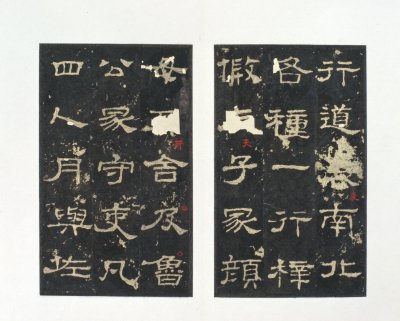 行道南北
各種一行梓
假子冢顏
母舍及魯
公冢守吏凡
四人月與佐